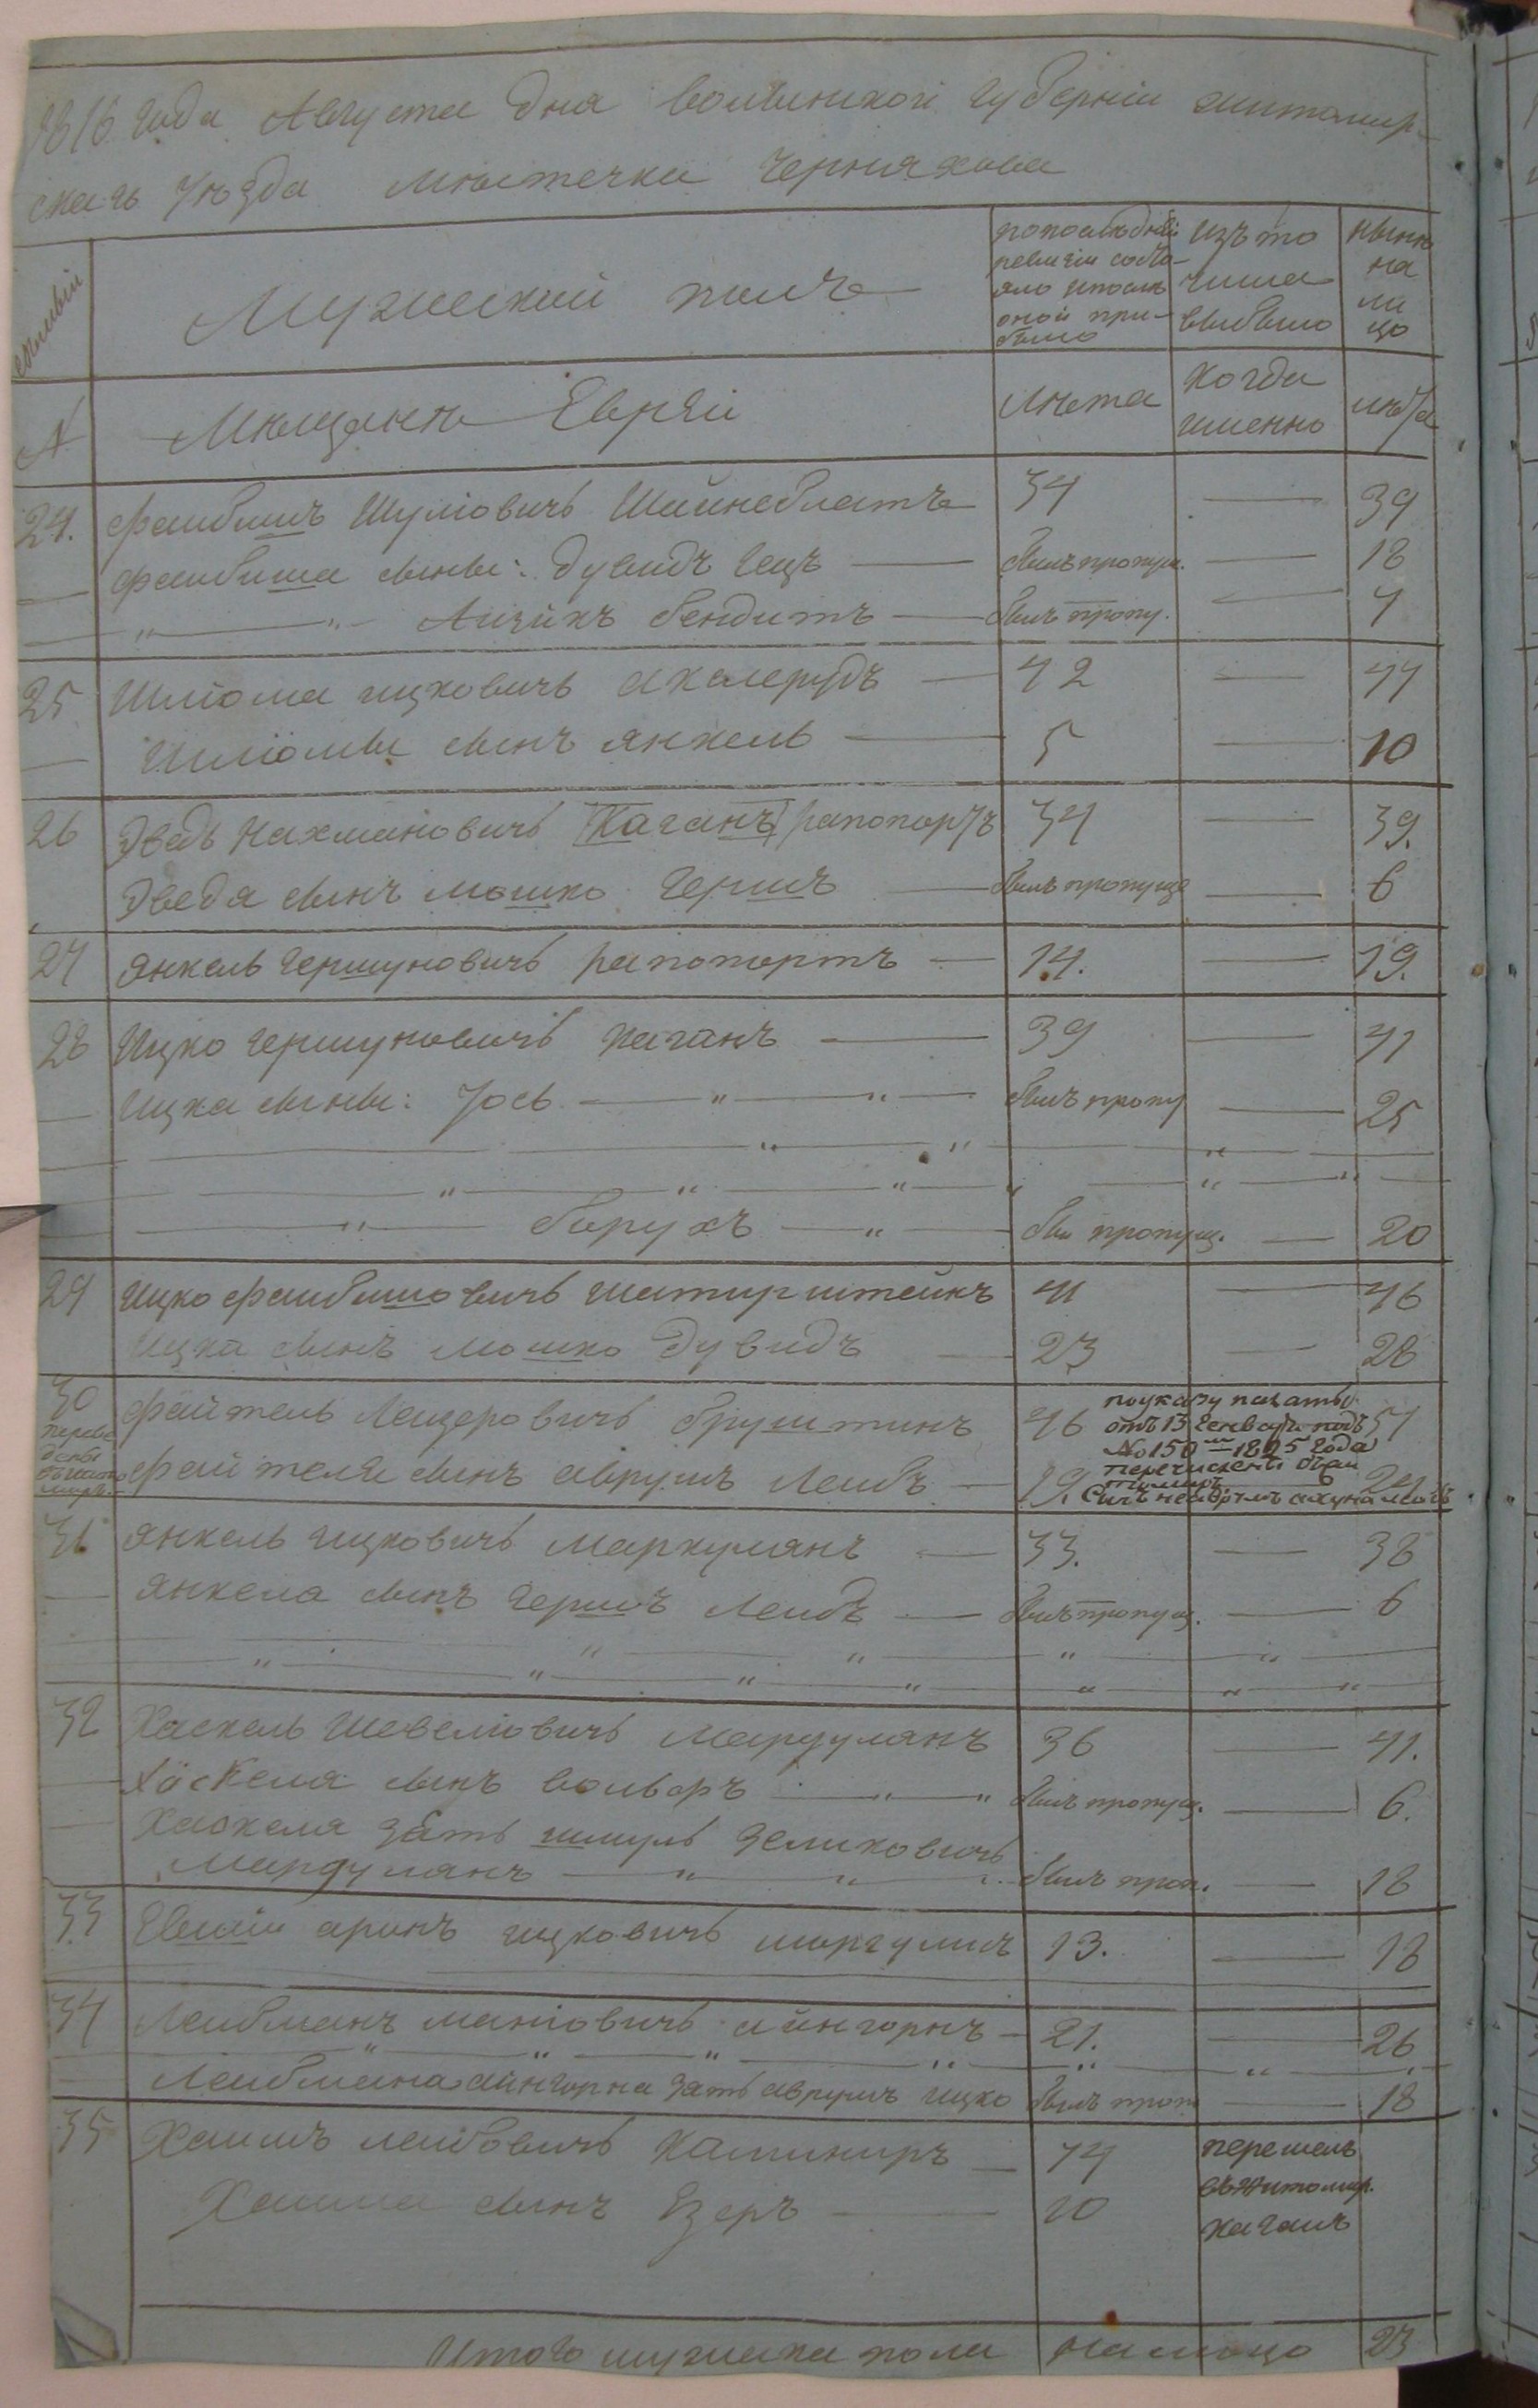 1816 года Августа дня волынской губерніи житомир-
скаго уѣзда мѣстечка Черняхова
семьи
Мужеский полъ
попослѣдней ревизіи состо-яло ипослѣ оной при-было
изъ то числа выбыло
нынѣ на ли цо
№ Мѣщанѣ Евреи лѣта когда именно лѣта
24. Фаибишъ Шуліовичъ Шаинеблатъ 34 — 39
— Фаибиша сыны: Дувидъ Гецъ — былъ пропущ. — 18
— " — " Аизикъ бендитъ — былъ пропу. — 7
25 Шліома ицковичъ — 42 — 47
— Шліомы сынъ янкель — 5 — 10
26 Эведь Нахмановичъ [Каганъ] рапопортъ 34 — 39.
Эведя сынъ мошко Гершъ — былъ пропуще — 6
27 янкель Гершуновичъ рапопортъ — 14. — 19.
28 Ицко Гершуновичъ каганъ — 39 — 41
— Ицка сыны: Iось — " — " — былъ пропу — 25
— " — " — " —
— " — " — " — " — " —
— " — борухъ — " — бы пропущ. — 20
29 ицко фаибишовичъ шатирштейнъ 41 — 46
Ицка сынъ мошко Дувидъ — 23 — 28
30 файтель Леизеровичъ бруштинъ 46 поуказу палаты 51
переве дены отъ 13 Генваря подъ
№ 150м 1825 года
файтеля сынъ аврумъ Леибъ — 19. перечислены 24
31 янкель ицковичъ маркулянъ — 33. — 38
— янкела сынъ Гершъ Леибъ — былъ пропущ. — 6
— " — " — " — " —
" — " — " — " — " — " — "
32 Хаскель Шевеліовичъ мардулянъ 36 — 41.
— Хаскеля сынъ вольфъ — " — " былъ пропущ. — 6.
— Хаскеля зять шмуль Зеликовичъ
мардулянъ — " — " — былъ проп. — 18
33 аронъ ицковичъ маргулис 13. — 18
34 Леибманъ маніовичъ айнгорнъ — 21. — 26
— " — " — " — " — " — " —
— Леибмана айнгорна зять аврумъ ицко былъ проп — 18
35 Хаимъ леибовичъ каминиръ — 74 перешелъ
Хаима сынъ Езеръ — 20 въ житомир.
кагалъ
Итого мужеска пола налицо 23